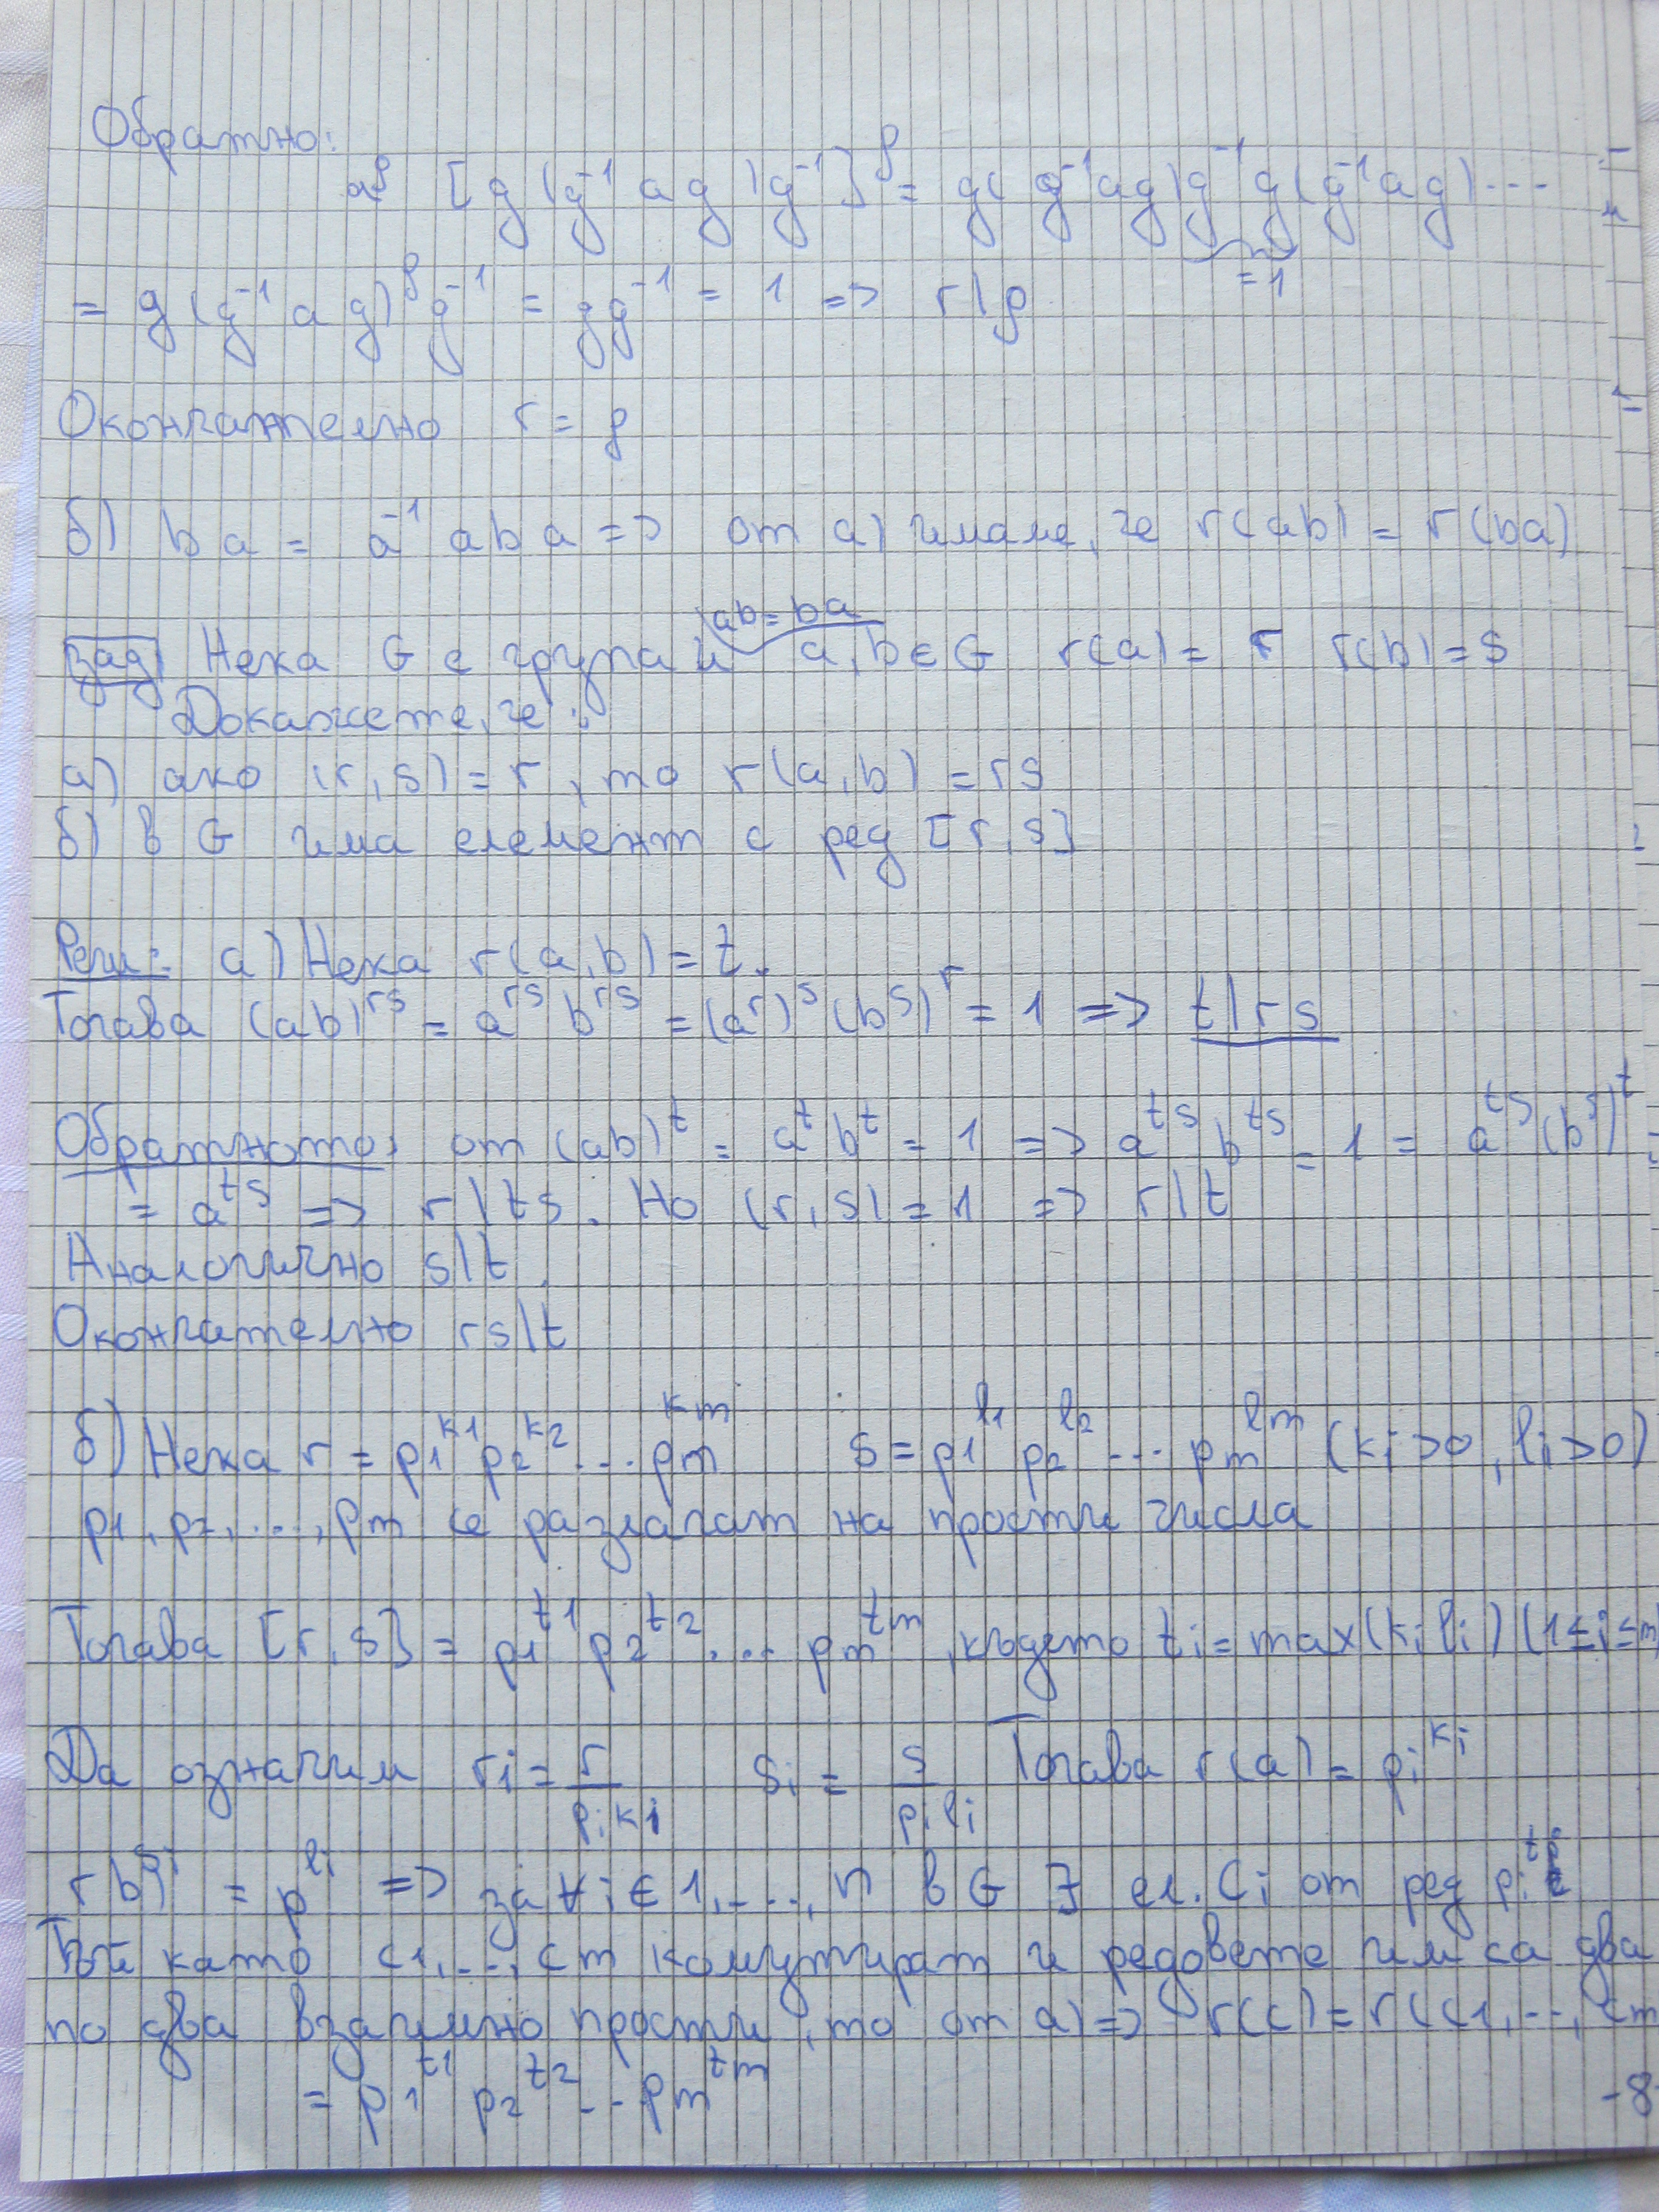 Обратно:
a^ρ [g(g^-1 a g)g^-1]^ρ = g(g^-1 a g)g^-1 g(g^-1 a g)...
= 1
= g(g^-1 a g)^ρ g^-1 = gg^-1 = 1 => r|ρ
Окончателно r = ρ
б) ba = a^-1 aba => от а) имаме, че r(ab) = r(ba)
ab = ba
зад) Нека G е група и a,b∈G r(a) = r r(b) = s
Докажете, че:
а) ако (r,s) = r, то r(a,b) = rs
б) в G има елемент с ред [r,s]
Реш: а) Нека r(a,b) = t.
Тогава (ab)^rs = a^rs b^rs = (a^r)^s (b^s)^r = 1 => t|rs
Обратното: от (ab)^t = a^t b^t = 1 => a^ts b^ts = 1 = a^ts (b^s)^t
= a^ts => r|ts. Но (r,s) = 1 => r|t
Аналогично s|t.
Окончателно rs|t
б) Нека r = p1^k1 p2^k2 ... pm^km s = p1^l1 p2^l2 ... pm^lm (ki>0, li>0)
p1, p2, ..., pm се разлагат на прости числа
Тогава [r,s] = p1^t1 p2^t2 ... pm^tm, където ti = max(ki li) (1≤i≤m)
Да означим ri = r/pi^ki si = s/pi^li Тогава r(a) = pi^ki
r b^si = p^li => за ∀ i ∈ 1,...,n в G ∃ ел. Ci от ред pi^ti
Тъй като c1,...,cm комутират и редовете им са два
по два взаимно прости, то от а) => r(c) = r(c1,...,cm
= p1^t1 p2^t2 ... pm^tm
-8-